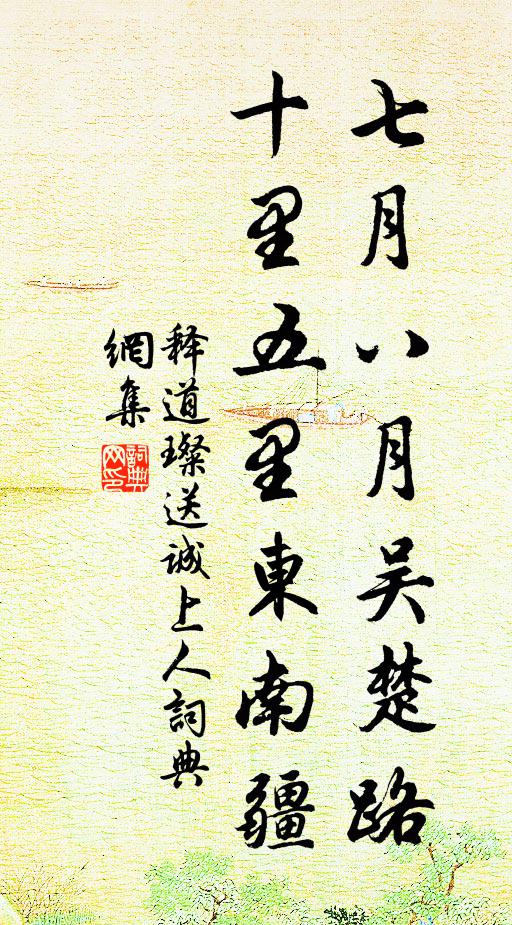 七月八月吴楚路
十里五里東南疆
释道璨送诚上人詞典
網集
詞典
网印